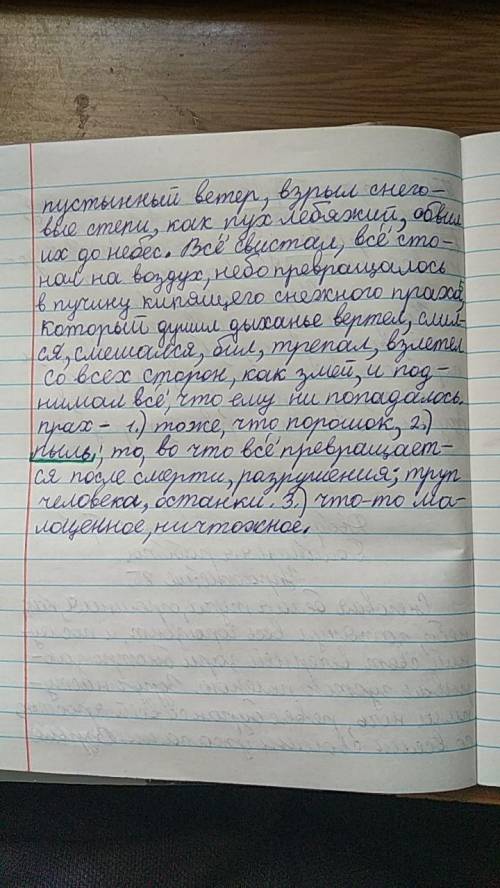 пустынный ветер, взрыл снего-
вые степи, как пух лебяжий, обвил
их до небес. Всё свистал, всё сто-
нал на воздух, небо превращалось
в пучину кипящего снежного праха,
который душил дыханье вертел, слил-
ся, смешался, бил, трепал, взлетел
со всех сторон, как змей, и под-
нимал всё, что ему ни попадалось.
прах - 1.) тоже, что порошок, 2.)
пыль; то, во что всё превращает-
ся после смерти, разрушения; труп
человека, останки. 3.) что-то ма-
лоценное, ничтожное.